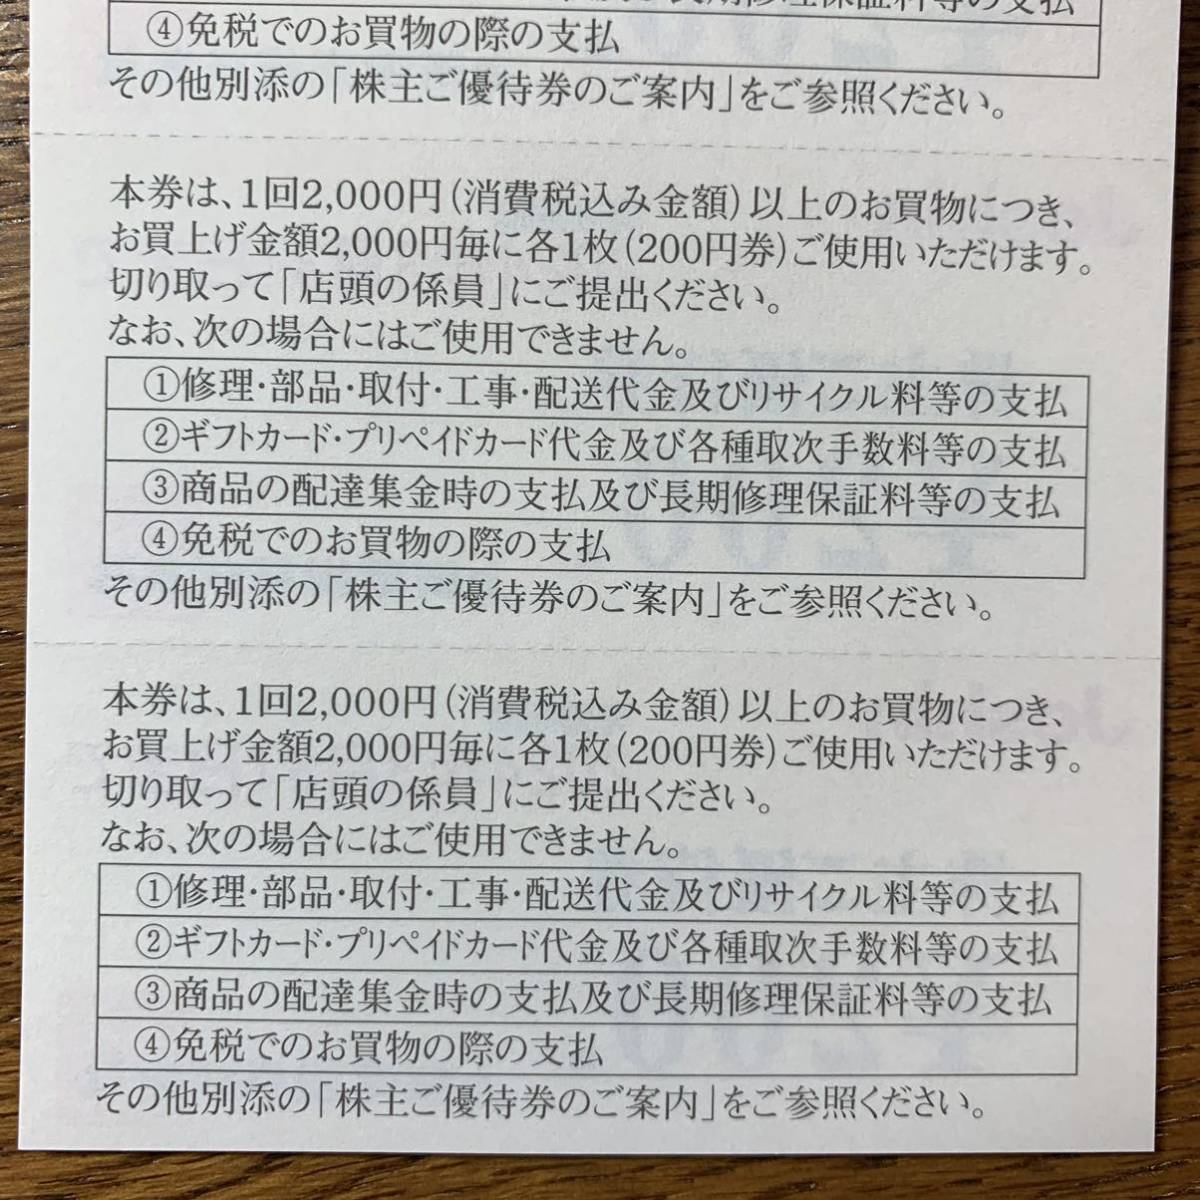 長期修理保証料等の支払
④免税でのお買物の際の支払
その他別添の「株主ご優待券のご案内」をご参照ください。
本券は、1回2,000円(消費税込み金額)以上のお買物につき、
お買上げ金額2,000円毎に各1枚(200円券)ご使用いただけます。
切り取って「店頭の係員」にご提出ください。
なお、次の場合にはご使用できません。
①修理・部品・取付・工事・配送代金及びリサイクル料等の支払
②ギフトカード・プリペイドカード代金及び各種取次手数料等の支払
③商品の配達集金時の支払及び長期修理保証料等の支払
④免税でのお買物の際の支払
その他別添の「株主ご優待券のご案内」をご参照ください。
本券は、1回2,000円(消費税込み金額)以上のお買物につき、
お買上げ金額2,000円毎に各1枚(200円券)ご使用いただけます。
切り取って「店頭の係員」にご提出ください。
なお、次の場合にはご使用できません。
①修理・部品・取付・工事・配送代金及びリサイクル料等の支払
②ギフトカード・プリペイドカード代金及び各種取次手数料等の支払
③商品の配達集金時の支払及び長期修理保証料等の支払
④免税でのお買物の際の支払
その他別添の「株主ご優待券のご案内」をご参照ください。